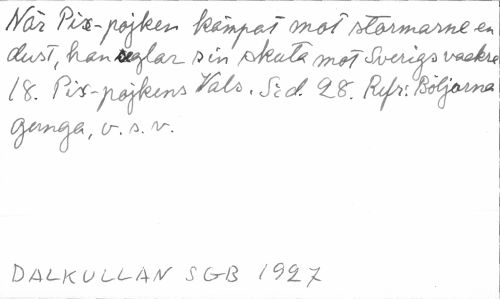 När Pix-pojken kämpat mot stormarne en
dust, han seglar sin skuta mot Sverigs vackra
18. Pix-pojkens Vals. Sid. 28. Refr: Böljorna
gunga, o. s. v.
DALKULLAN SGB 1927